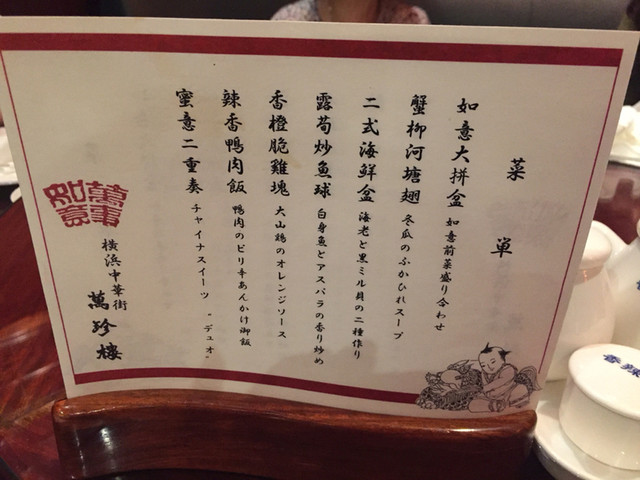 菜単
如意大拼盆 如意前菜盛り合わせ
蟹柳河塘翅 冬瓜のふかひれスープ
二式海鮮盆 海老と黒ミル貝の二種作り
露荀炒魚球 白身魚とアスパラの香り炒め
香橙脆雞塊 大山鶏のオレンジソース
辣香鴨肉飯 鴨肉のピリ辛あんかけ御飯
蜜意二重奏 チャイナスイーツ "デュオ"
萬事如意
横浜中華街 萬珍樓
香辣